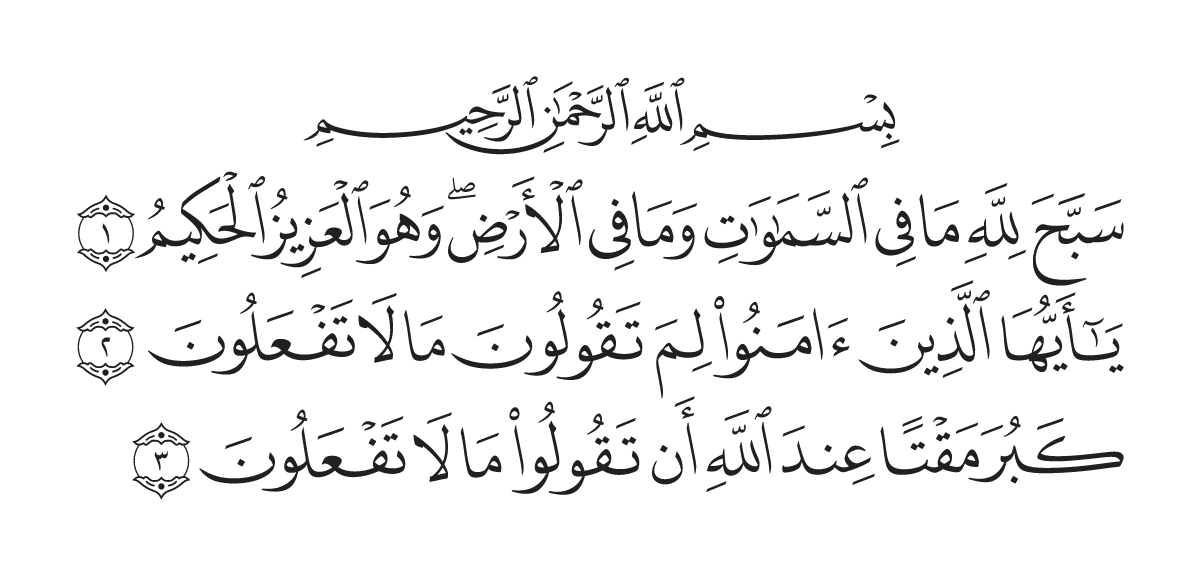 بِسْمِ ٱللَّهِ ٱلرَّحْمَٰنِ ٱلرَّحِيمِ
سَبَّحَ لِلَّهِ مَا فِي ٱلسَّمَٰوَٰتِ وَمَا فِي ٱلْأَرْضِۖ وَهُوَ ٱلْعَزِيزُ ٱلْحَكِيمُ ١
يَٰٓأَيُّهَا ٱلَّذِينَ ءَامَنُوا۟ لِمَ تَقُولُونَ مَا لَا تَفْعَلُونَ ٢
كَبُرَ مَقْتًا عِندَ ٱللَّهِ أَن تَقُولُوا۟ مَا لَا تَفْعَلُونَ ٣